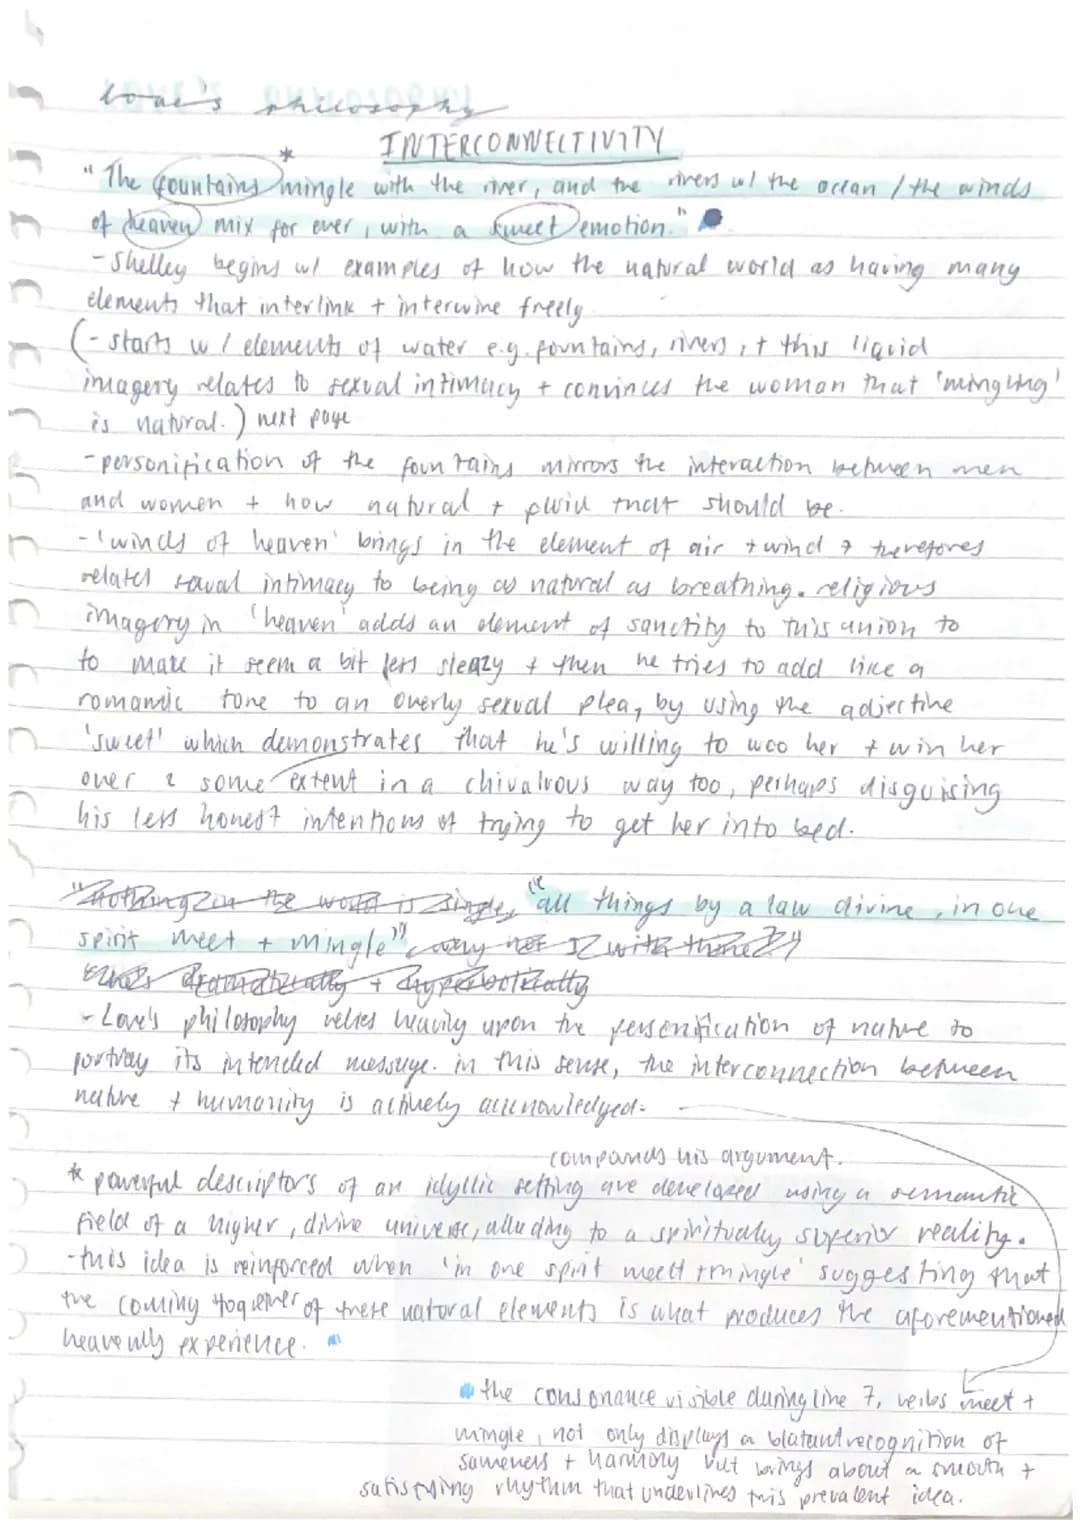 Love's philosophy
INTERCONNECTIVITY
*
" The fountains mingle with the river, and the rivers w/ the ocean / the winds
of heaven mix for ever, with a sweet emotion."
- Shelley begins w/ examples of how the natural world as having many
elements that interlink + interwine freely
(- starts w/ elements of water e.g. fountains, rivers, + this liquid
imagery relates to sexual intimacy + convinces the woman that 'mingling'
is natural.) next page
- personification of the fountains mirrors the interaction between men
and women + how natural + fluid that should be.
- 'winds of heaven' brings in the element of air + wind & therefores
relates sexual intimacy to being as natural as breathing. religious
imagery in 'heaven' adds an element of sanctity to this union to
to make it seem a bit less sleazy + then he tries to add like a
romantic tone to an overly sexual plea, by using the adjective
'sweet' which demonstrates that he's willing to woo her + win her
over 2 some extent in a chivalrous way too, perhaps disguising
his less honest intentions of trying to get her into bed.
"nothing in the world is single, "all things by a law divine, in one
spirit meet + mingle" why not I with thine?"
dramatically + hyperbolically
- Love's philosophy relies heavily upon the personification of nature to
portray its intended message. in this sense, the interconnection between
nature + humanity is actively acknowledged.
compands his argument.
* powerful descriptors of an idyllic setting are developed using a semantic
field of a higher, divine universe, alluding to a spiritually superior reality.
- this idea is reinforced when 'in one spirit meet + mingle' suggesting that
the coming together of these natural elements is what produces the aforementioned
heavenly experience.
the consonance visible during line 7, verbs meet +
mingle, not only displays a blatant recognition of
sameness + harmony but brings about a smooth +
satisfying rhythm that underlines this prevalent idea.